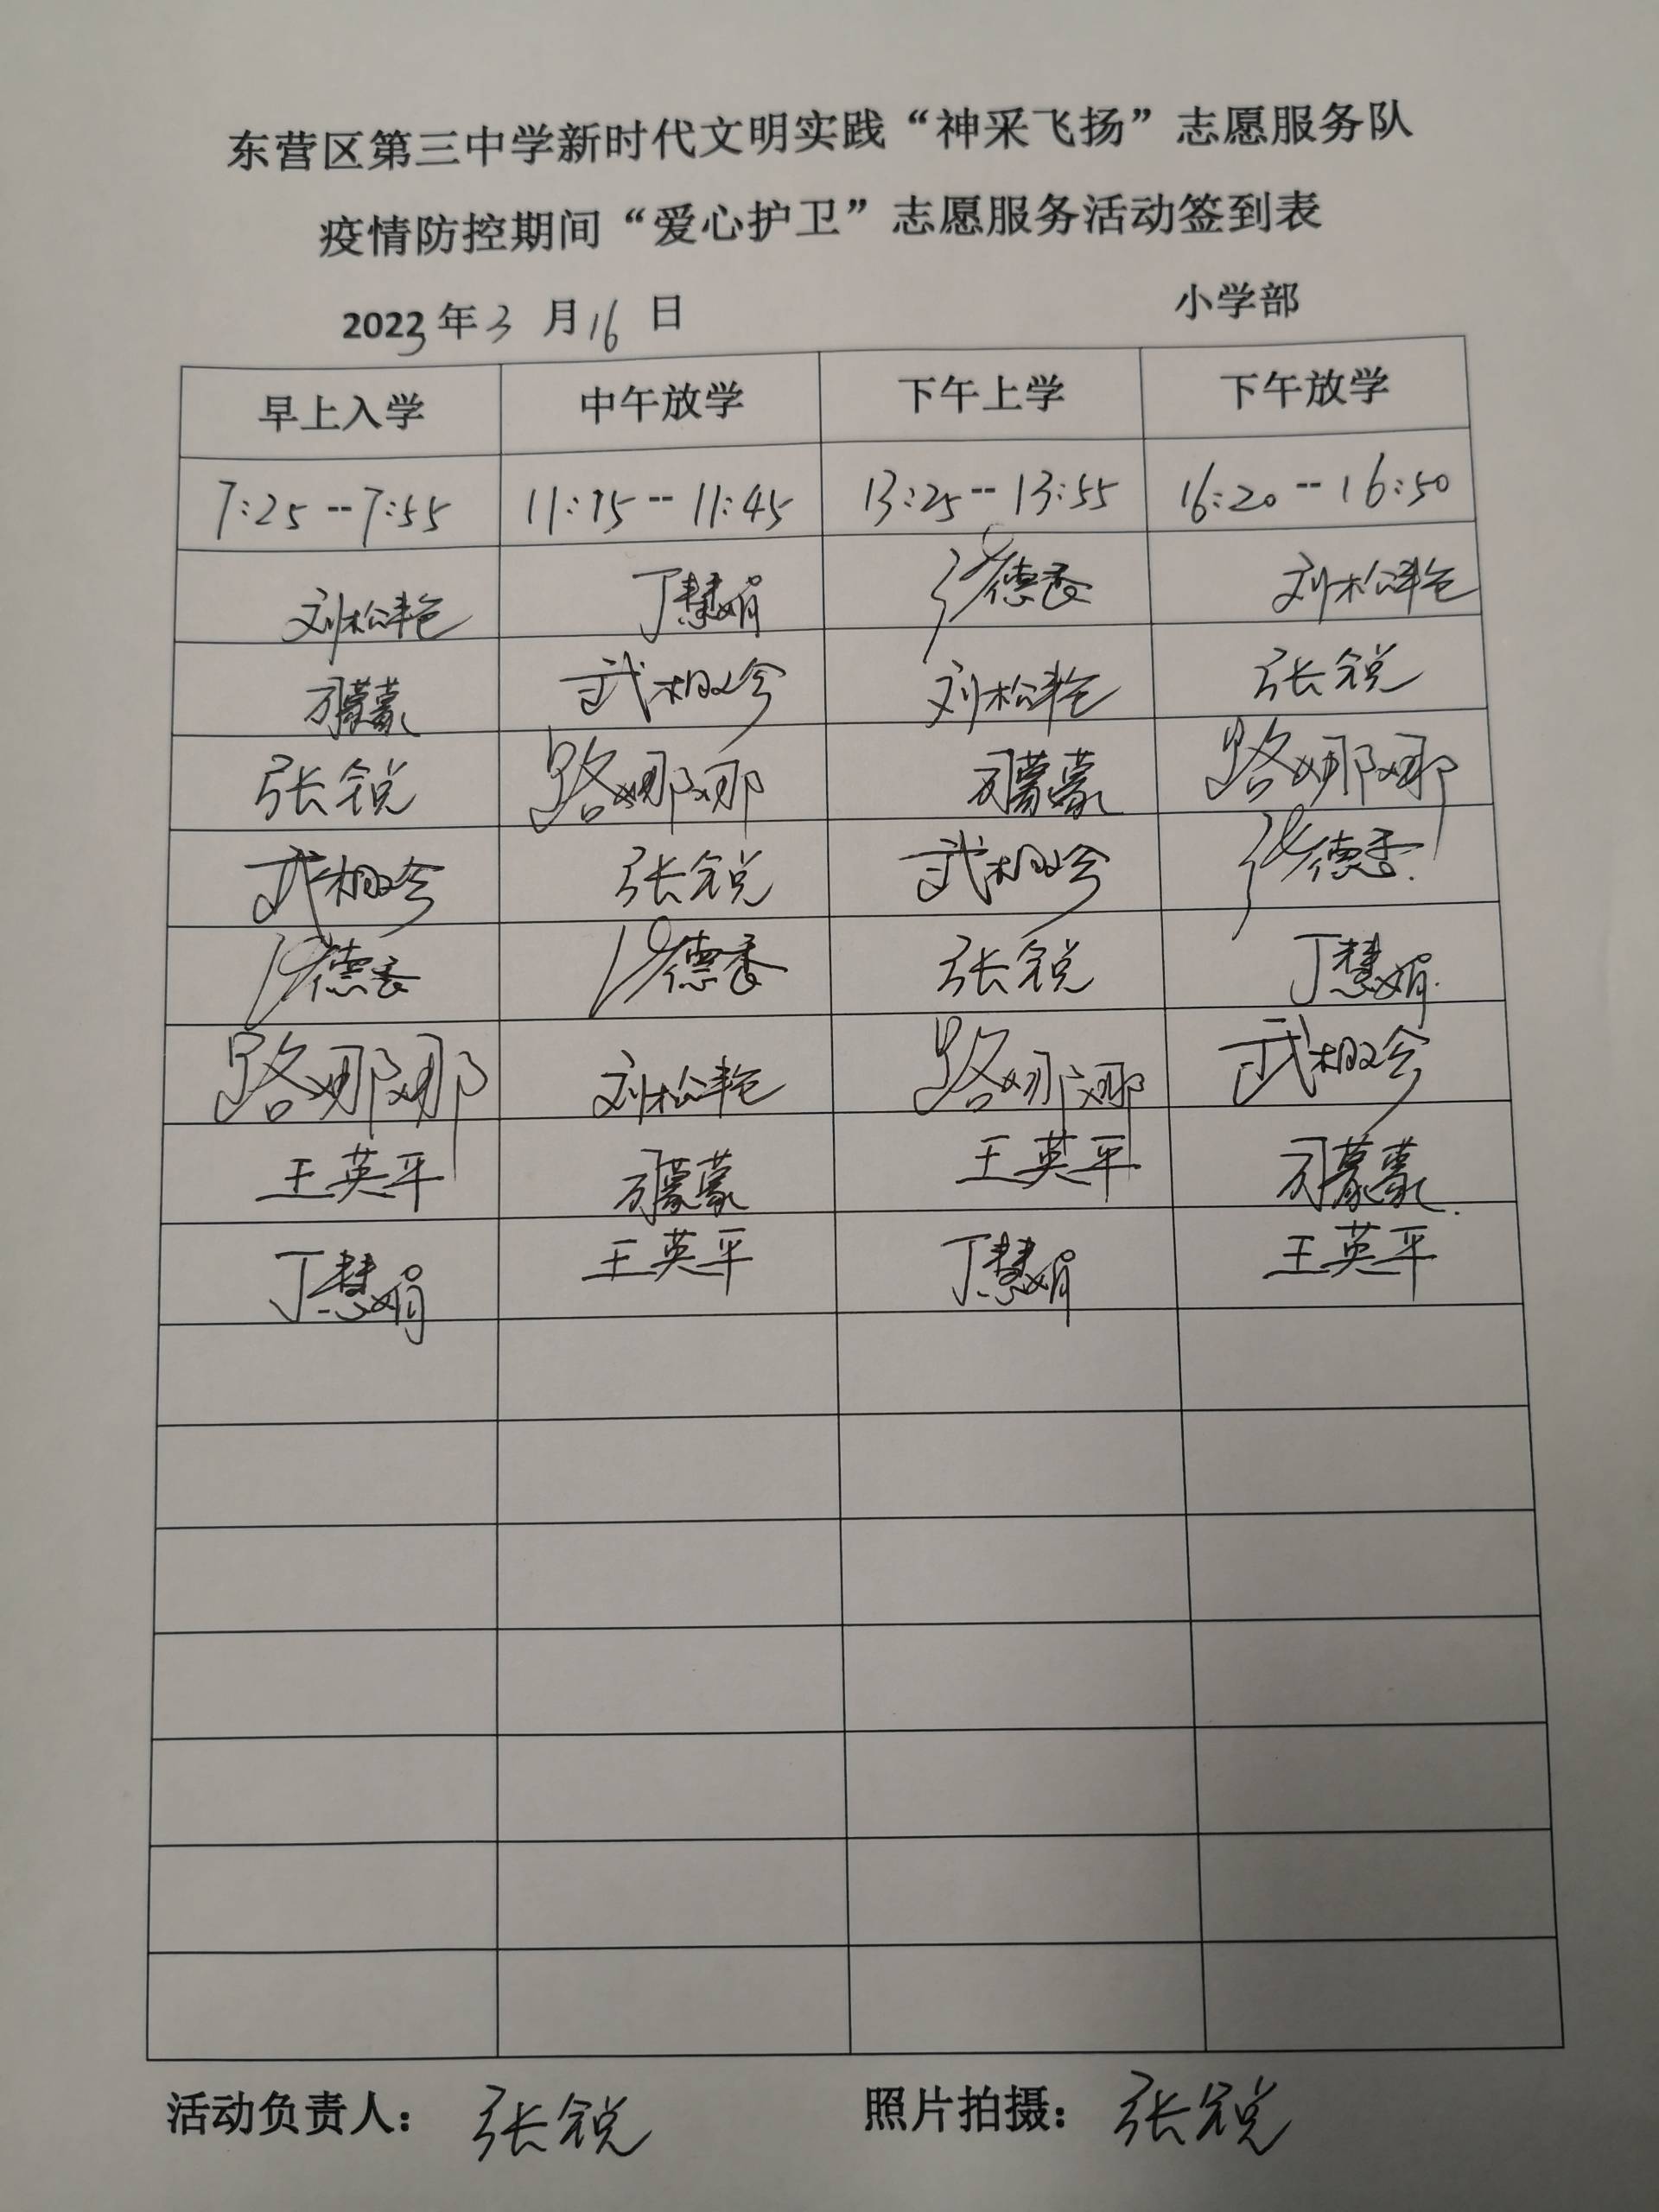 东营区第三中学新时代文明实践“神采飞扬”志愿服务队
疫情防控期间“爱心护卫”志愿服务活动签到表
2023年3月16日 小学部
早上入学 中午放学 下午上学 下午放学
7:25--7:55 11:15--11:45 13:25--13:55 16:20--16:50
刘松艳 丁慧娟 张德香 刘松艳
蒙蒙 武相 刘松艳 张锐
张锐 路娜娜 蒙蒙 路娜娜
武相 张锐 武相 张德香
张德香 张德香 张锐 丁慧娟
路娜娜 刘松艳 路娜娜 武相
王英平 蒙蒙 王英平 蒙蒙
丁慧娟 王英平 丁慧娟 王英平
活动负责人：张锐 照片拍摄：张锐